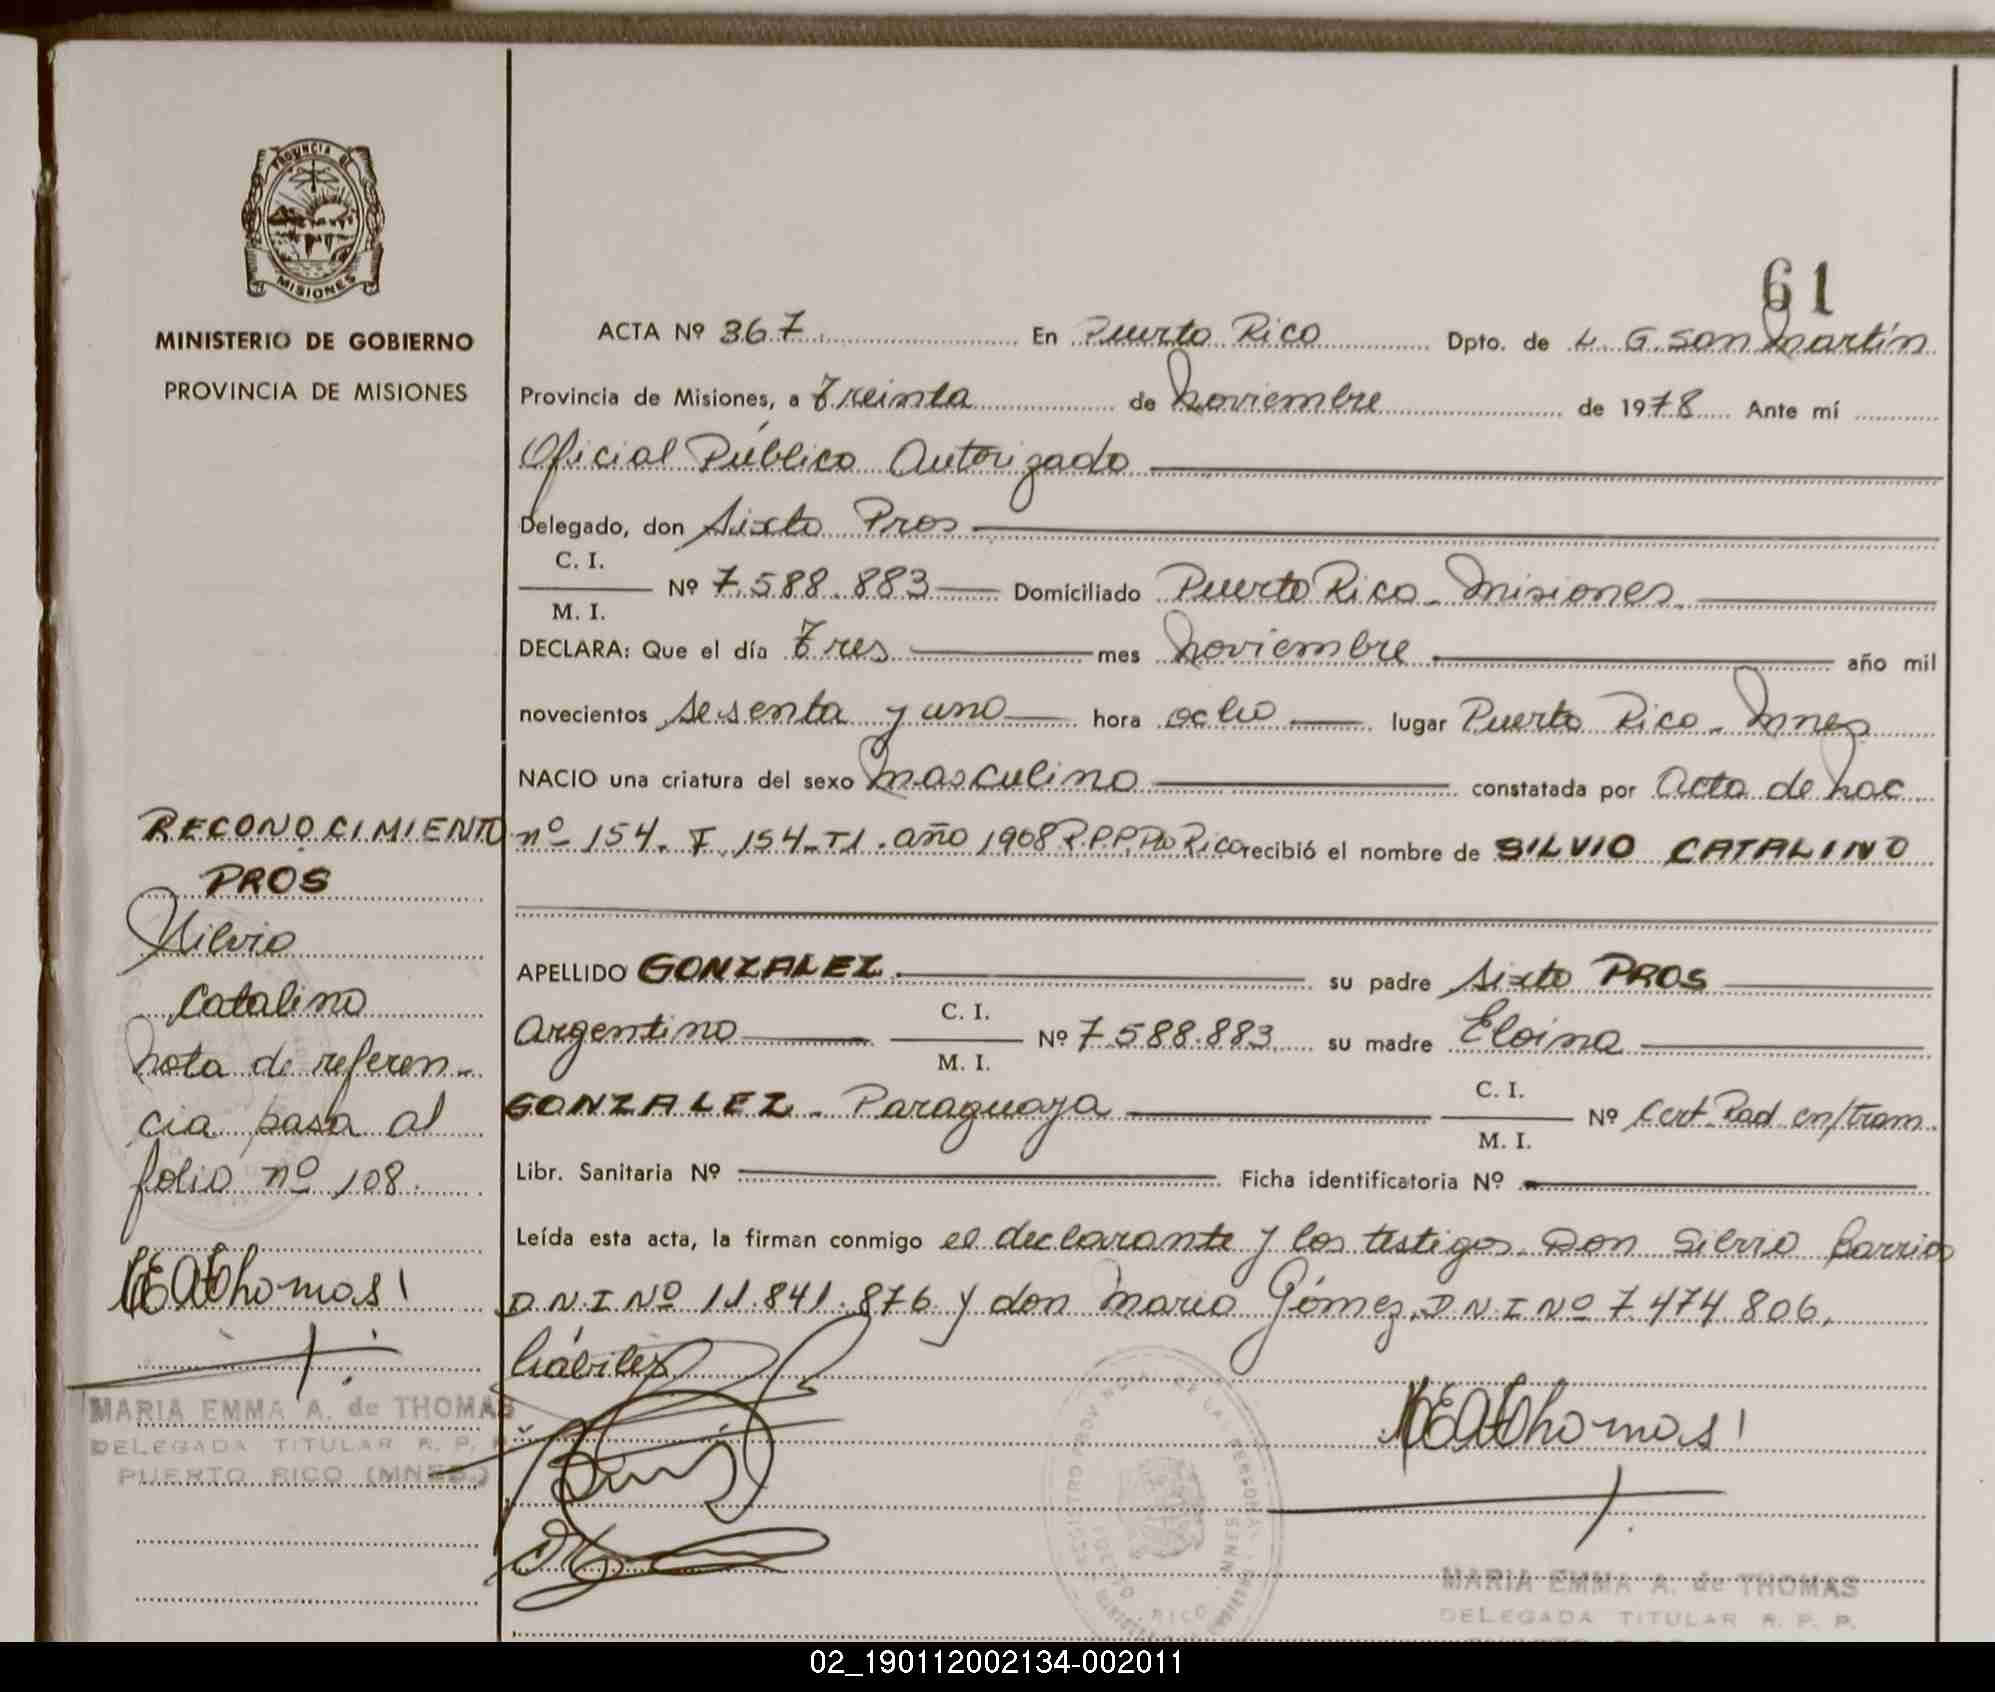 PROVINCIA DE
MISIONES
MINISTERIO DE GOBIERNO
PROVINCIA DE MISIONES
RECONOCIMIENTO
PROS
Silvio
Catalino
Nota de referen-
cia pasa al
folio nº 108.
MEAThomas
MARIA EMMA A. de THOMAS
DELEGADA TITULAR R. P. P.
PUERTO RICO (MNES.)
61
ACTA Nº 367. En Puerto Rico Dpto. de L. G. San Martín
Provincia de Misiones, a Treinta de Noviembre de 1978 Ante mí
Oficial Público Autorizado
Delegado, don Sixto Pros
C. I.
Nº 7.588.883 Domiciliado Puerto Rico - Misiones.
M. I.
DECLARA: Que el día Tres mes Noviembre año mil
novecientos sesenta y uno hora ocho lugar Puerto Rico - Mnes
NACIO una criatura del sexo Masculino constatada por Acta de Nac
nº 154. F. 154-T1. año 1968 R.P.P. Pto Rico recibió el nombre de SILVIO CATALINO
APELLIDO GONZALEZ. su padre Sixto PROS
C. I.
Argentino Nº 7.588.883 su madre Eloina
M. I.
C. I.
GONZALEZ - Paraguaya Nº Cert. Rad en/tram.
M. I.
Libr. Sanitaria Nº Ficha identificatoria Nº
Leída esta acta, la firman conmigo el declarante y los testigos Don Silvio Barrios
D.N.I Nº 11.841.876 y don Mario Gómez, D.N.I Nº 7.474.806,
hábiles
MEAThomas
REGISTRO PROVINCIAL DE LAS PERSONAS
PUERTO RICO
MARIA EMMA A. de THOMAS
DELEGADA TITULAR R. P. P.
02_190112002134-002011